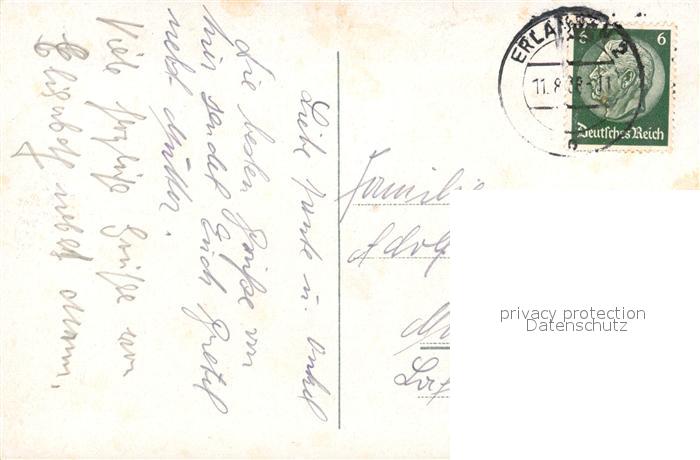 ERLANGEN 2
11.8.38-11
a
6
6
Deutsches Reich
Liebe Tante u. Onkel
die besten Grüße von
hier sendet Euch Gretel
nebst Mutter.
Viele herzliche Grüße von
Elisabeth nebst Mann.
Familie
Adolf
privacy protection
Datenschutz